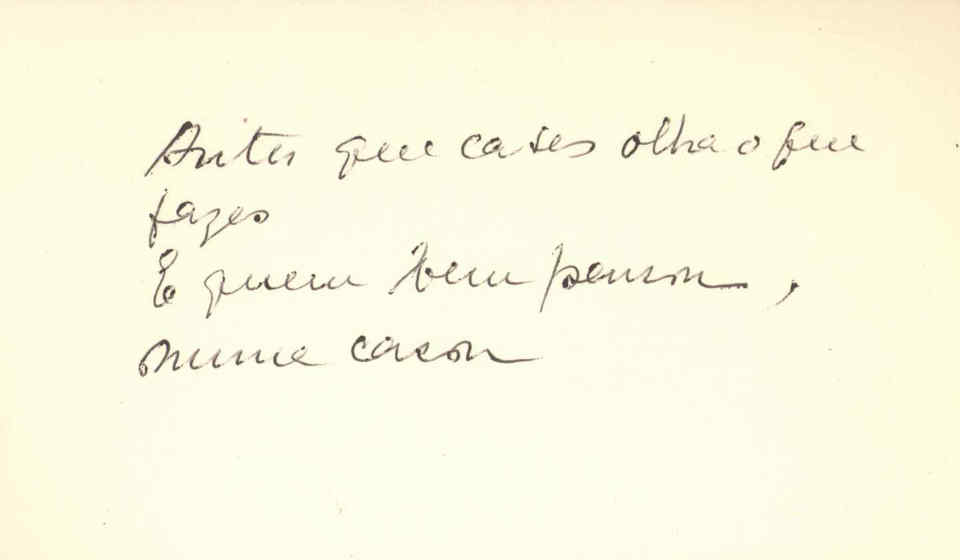 Antes que cases olha o que
fazes
E quem bem pensou,
nunca casou